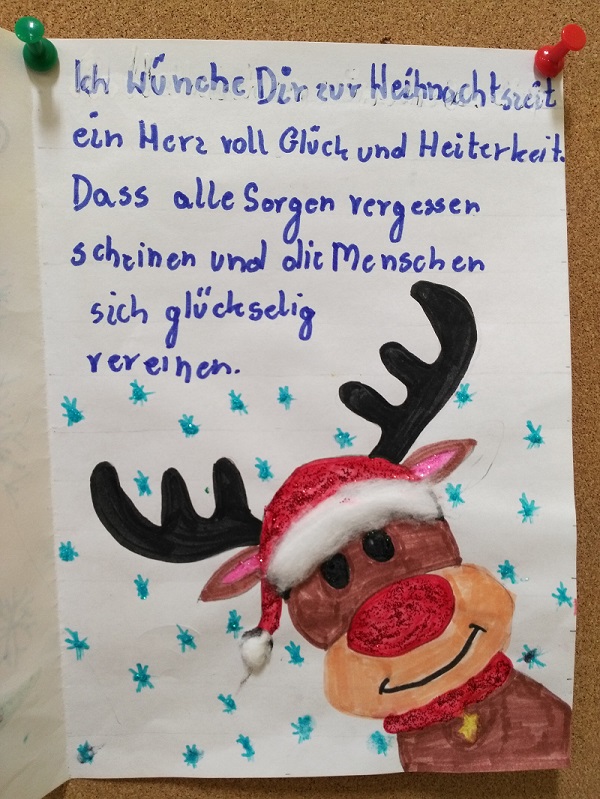 Ich Wünche Dir zur Weihnachtszeit
ein Herz voll Glück und Heiterkeit.
Dass alle Sorgen vergessen
scheinen und die Menschen
sich glückselig
vereinen.